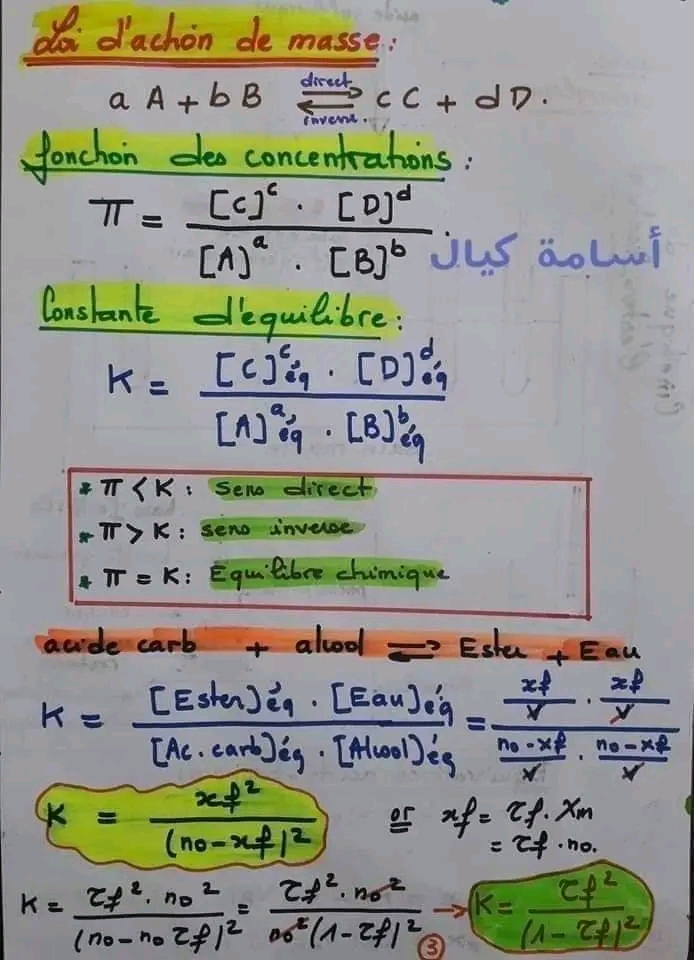 Loi d'action de masse :
a A + b B ⇌ c C + d D.
direct
inverse.
fonction des concentrations :
π = [C]^c . [D]^d / [A]^a . [B]^b
أسامة كيال
Constante d'équilibre :
K = [C]^c éq . [D]^d éq / [A]^a éq . [B]^b éq
* π < K : sens direct
* π > K : sens inverse
* π = K : Equilibre chimique
acide carb + alcool ⇌ Ester + Eau
K = [Ester]éq . [Eau]éq / [Ac. carb]éq . [Alcool]éq = (xf/V . xf/V) / (n0-xf/V . n0-xf/V)
K = xf² / (n0-xf)² or xf = τf . Xm
= τf . n0.
K = τf² . n0² / (n0 - n0 τf)² = τf² . n0² / n0² (1 - τf)² → K = τf² / (1 - τf)²
3